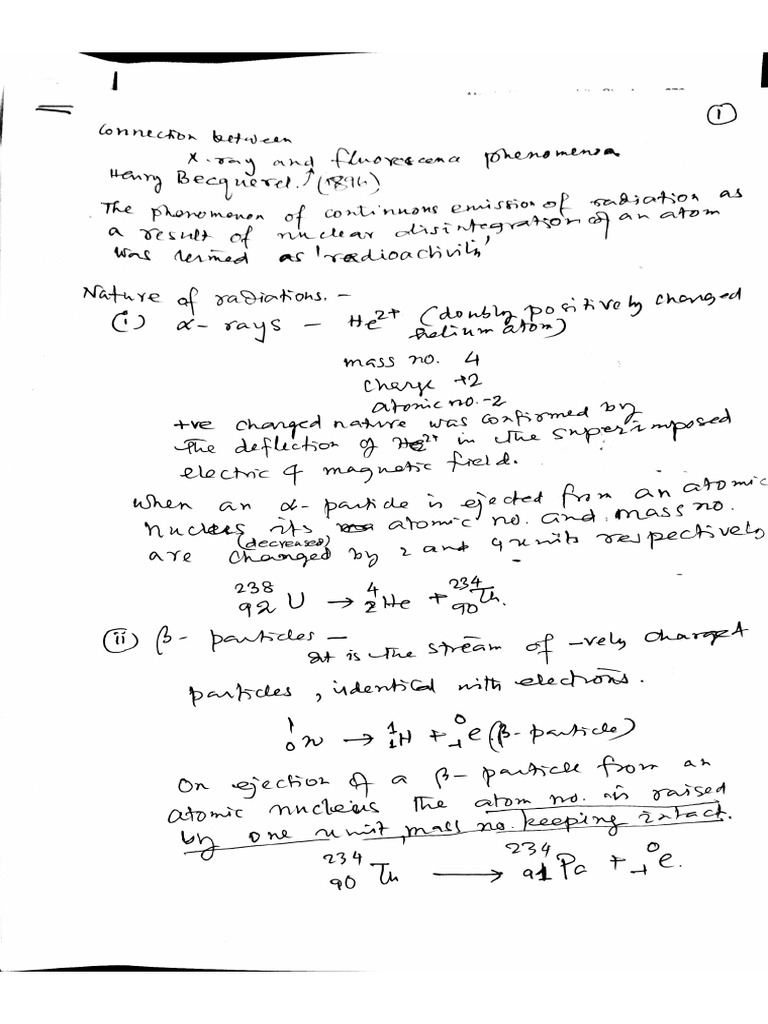 1
①
Connection between
X-ray and fluorescence phenomena
Henry Becquerel. (1896)
The phenomenon of continuous emission of radiation as
a result of nuclear disintegration of an atom
was termed as 'radioactivity'
Nature of radiations. –
(i) α- rays – He²⁺ (doubly positively charged
helium atom)
mass no. 4
charge +2
atomic no. -2
+ve charged nature was confirmed by
the deflection of He²⁺ in the superimposed
electric & magnetic field.
When an α- particle is ejected from an atomic
nucleus its atomic no. and mass no.
(decreases)
are changed by 2 and 4 units respectively
²³⁸₉₂U → ⁴₂He + ²³⁴₉₀Th.
(ii) β- particles –
It is the stream of -vely charged
particles, identical with electrons.
¹₀n → ¹₁H + ⁰₋₁e (β- particle)
On ejection of a β- particle from an
atomic nucleus the atom no. is raised
by one unit, mass no. keeping intact.
²³⁴₉₀Th → ²³⁴₉₁Pa + ⁰₋₁e.